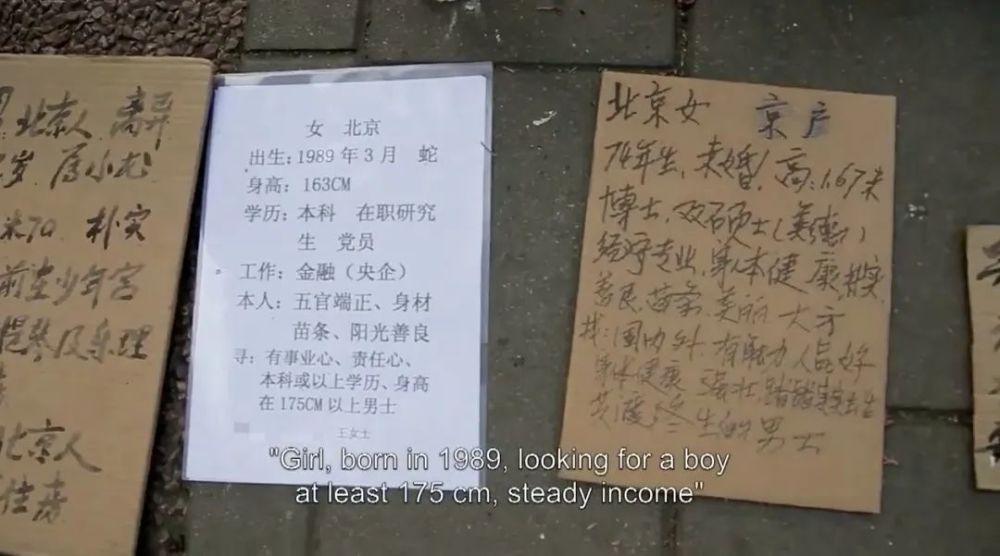 北京人 离异
岁 属小龙
米70 朴实
前在少年宫
提琴及乐理
北京人
住房
女 北京
出生：1989年3月 蛇
身高：163CM
学历：本科 在职研究
生 党员
工作：金融（央企）
本人：五官端正、身材
苗条、阳光善良
寻：有事业心、责任心、
本科或以上学历、身高
在175CM以上男士
王女士
北京女 京户
74年生，未婚，高：1.67米
博士，双硕士（美德）
经济专业，身体健康 朴实
善良，苗条，美丽 大方
找：国内外 有能力 人品好
身体健康 强壮，踏踏实实
共度 生的男士
"Girl, born in 1989, looking for a boy
at least 175 cm, steady income"